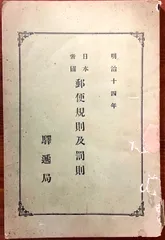 明治十四年
日本帝国郵便規則及罰則
驛遞局